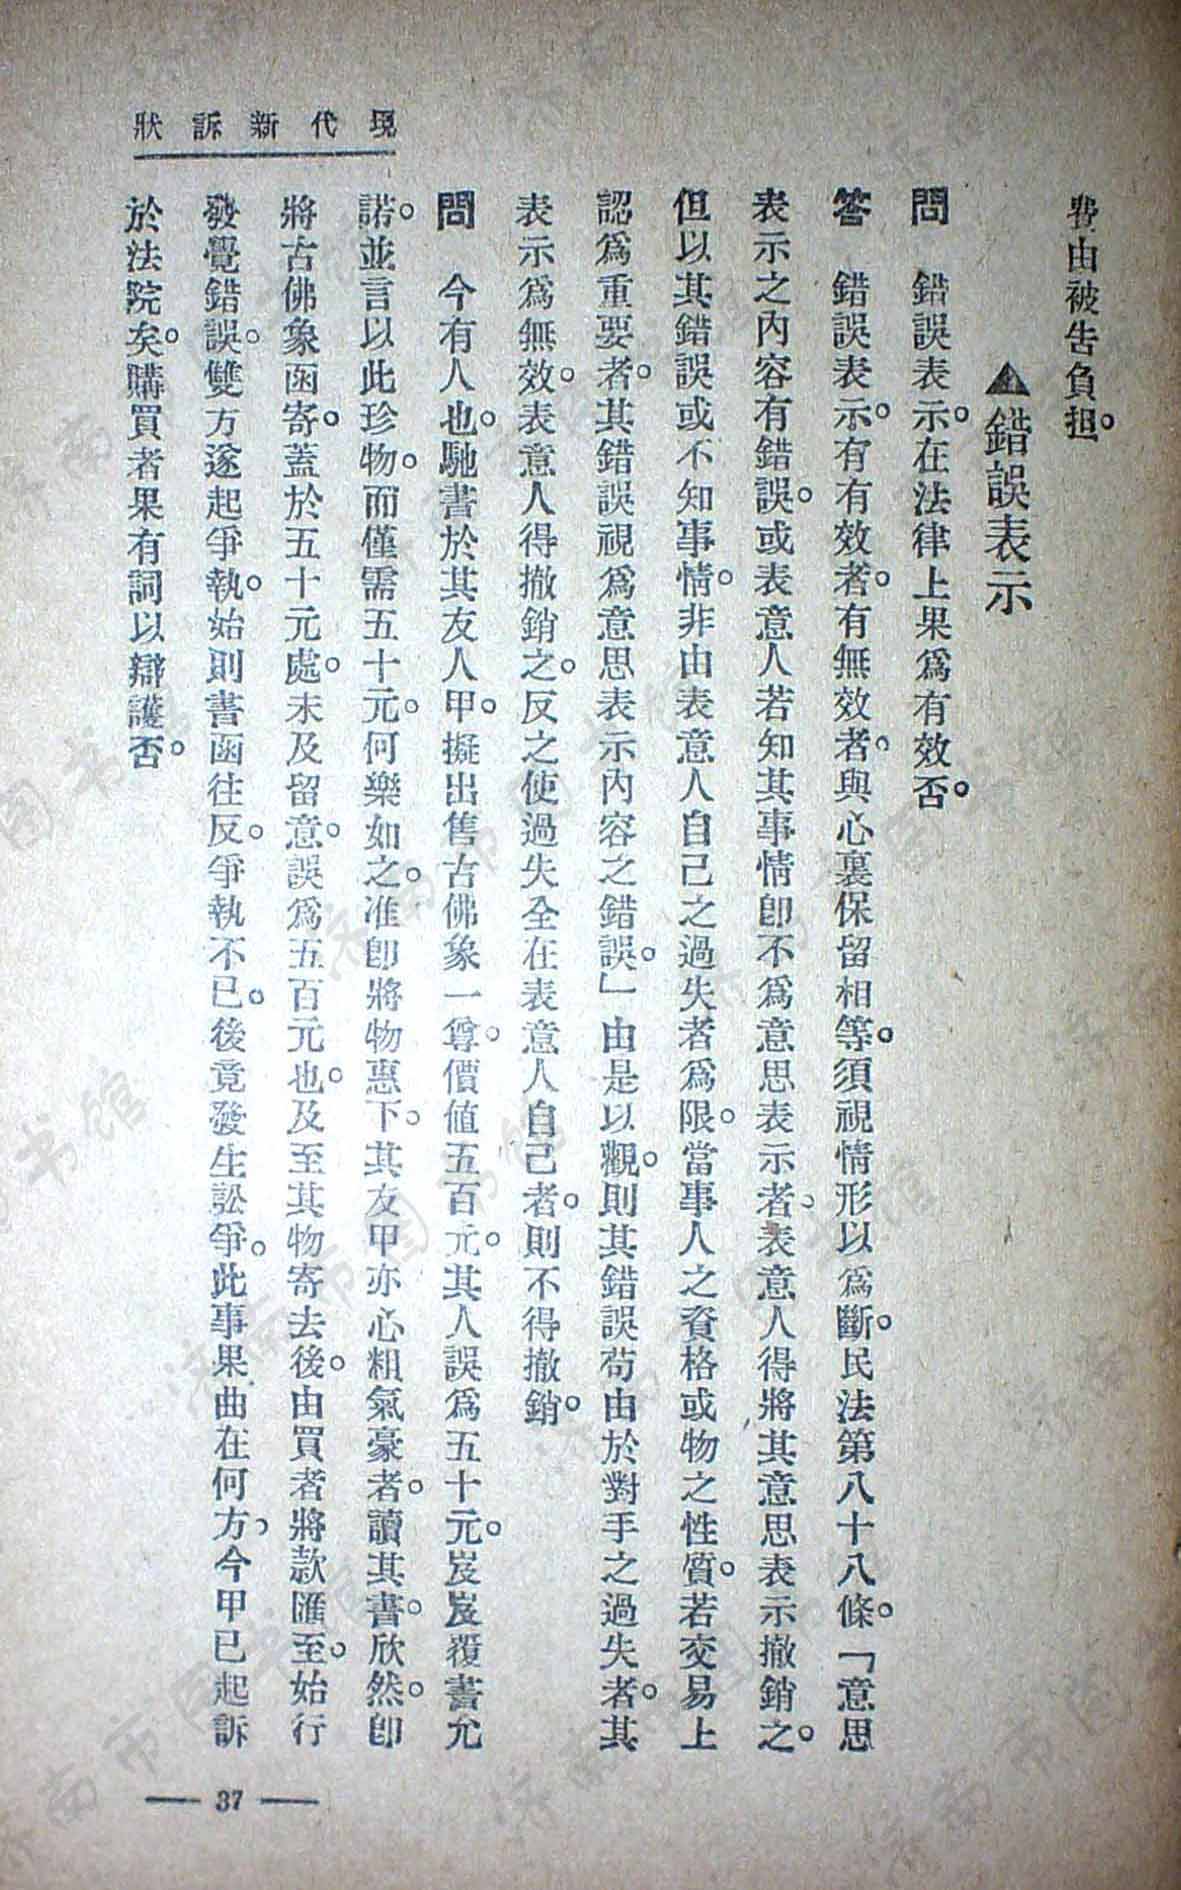 現代新訴狀
費由被告負担。
▲錯誤表示
問　錯誤表示。在法律上果爲有效否。
答　錯誤表示。有有效者。有無效者。與心裏保留相等。須視情形以爲斷。民法第八十八條。「意思
表示之內容有錯誤。或表意人若知其事情卽不爲意思表示者、表意人得將其意思表示撤銷之。
但以其錯誤或不知事情。非由表意人自己之過失者爲限。當事人之資格或物之性質。若交易上
認爲重要者。其錯誤視爲意思表示內容之錯誤。」由是以觀。則其錯誤苟由於對手之過失者。其
表示爲無效。表意人得撤銷之。反之使過失全在表意人自己者。則不得撤銷。
問　今有人也。馳書於其友人甲。擬出售古佛象一尊。價値五百元。其人誤爲五十元。岌岌覆書允
諾。並言以此珍物。而僅需五十元。何樂如之。准卽將物惠下。其友甲亦心粗氣豪者。讀其書。欣然。卽
將古佛象函寄。蓋於五十元處。未及留意。誤爲五百元也。及至其物寄去後。由買者將款匯至。始行
發覺錯誤。雙方遂起爭執。始則書函往反。爭執不已。後竟發生訟爭。此事果曲在何方、今甲已起訴
於法院矣。購買者果有詞以辯護否。
— 37 —
济南市图书馆